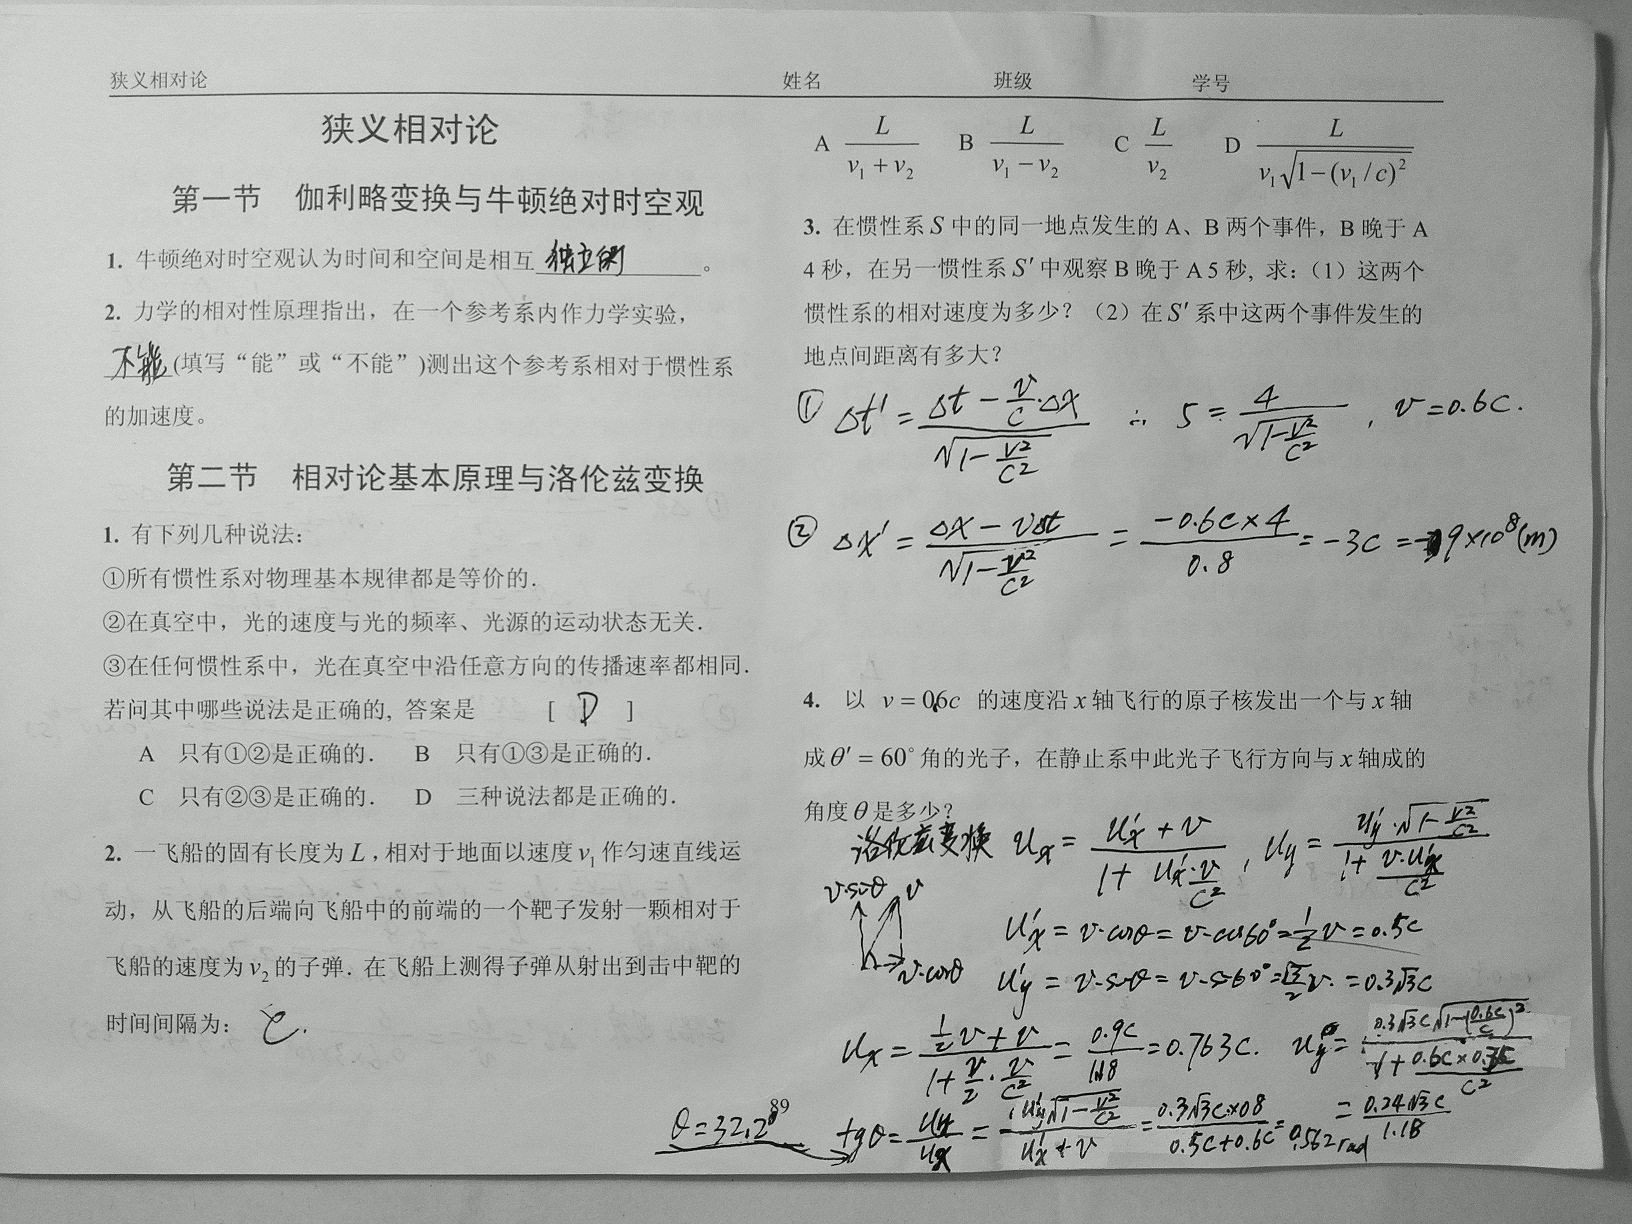 狭义相对论 姓名 班级 学号
狭义相对论
第一节 伽利略变换与牛顿绝对时空观
1. 牛顿绝对时空观认为时间和空间是相互 独立的 。
2. 力学的相对性原理指出，在一个参考系内作力学实验，
不能 (填写“能”或“不能”)测出这个参考系相对于惯性系
的加速度。
第二节 相对论基本原理与洛伦兹变换
1. 有下列几种说法：
①所有惯性系对物理基本规律都是等价的.
②在真空中，光的速度与光的频率、光源的运动状态无关.
③在任何惯性系中，光在真空中沿任意方向的传播速率都相同.
若问其中哪些说法是正确的, 答案是 [ D ]
A 只有①②是正确的. B 只有①③是正确的.
C 只有②③是正确的. D 三种说法都是正确的.
2. 一飞船的固有长度为 L ,相对于地面以速度 v₁ 作匀速直线运
动，从飞船的后端向飞船中的前端的一个靶子发射一颗相对于
飞船的速度为 v₂ 的子弹. 在飞船上测得子弹从射出到击中靶的
时间间隔为： C.
A L/(v₁ + v₂) B L/(v₁ − v₂) C L/v₂ D L/(v₁√(1−(v₁/c)²))
3. 在惯性系 S 中的同一地点发生的 A、B 两个事件，B 晚于 A
4 秒，在另一惯性系 S′ 中观察 B 晚于 A 5 秒, 求：（1）这两个
惯性系的相对速度为多少？（2）在 S′ 系中这两个事件发生的
地点间距离有多大？
① Δt′ = (Δt − v/c·Δx)/√(1−v²/c²) ∴ 5 = 4/√(1−v²/c²) , v = 0.6c.
② Δx′ = (Δx − vΔt)/√(1−v²/c²) = (−0.6c×4)/0.8 = −3c = −9×10⁸(m)
4. 以 v = 0.6c 的速度沿 x 轴飞行的原子核发出一个与 x 轴
成 θ′ = 60° 角的光子，在静止系中此光子飞行方向与 x 轴成的
角度 θ 是多少？
洛伦兹变换 uₓ = (u′ₓ + v)/(1 + u′ₓ·v/c²) , u_y = (u′_y·√(1−v²/c²))/(1 + v·u′ₓ/c²)
v·sinθ v
v·cosθ
u′ₓ = v·cosθ = v·cos60° = 1/2 v = 0.5c
u′_y = v·sinθ = v·sin60° = √3/2 v. = 0.3√3c
uₓ = (1/2 v + v)/(1 + v/2·v/c²) = 0.9c/1.18 = 0.763c. u_y = (0.3√3c√(1−(0.6c/c)²))/(1 + 0.6c×0.3c/c²)
= 0.24√3c/1.18
tgθ = u_y/uₓ = (u′_y√(1−v²/c²))/(u′ₓ + v) = (0.3√3c×0.8)/(0.5c+0.6c) = 0.562rad
θ = 32.2°
89